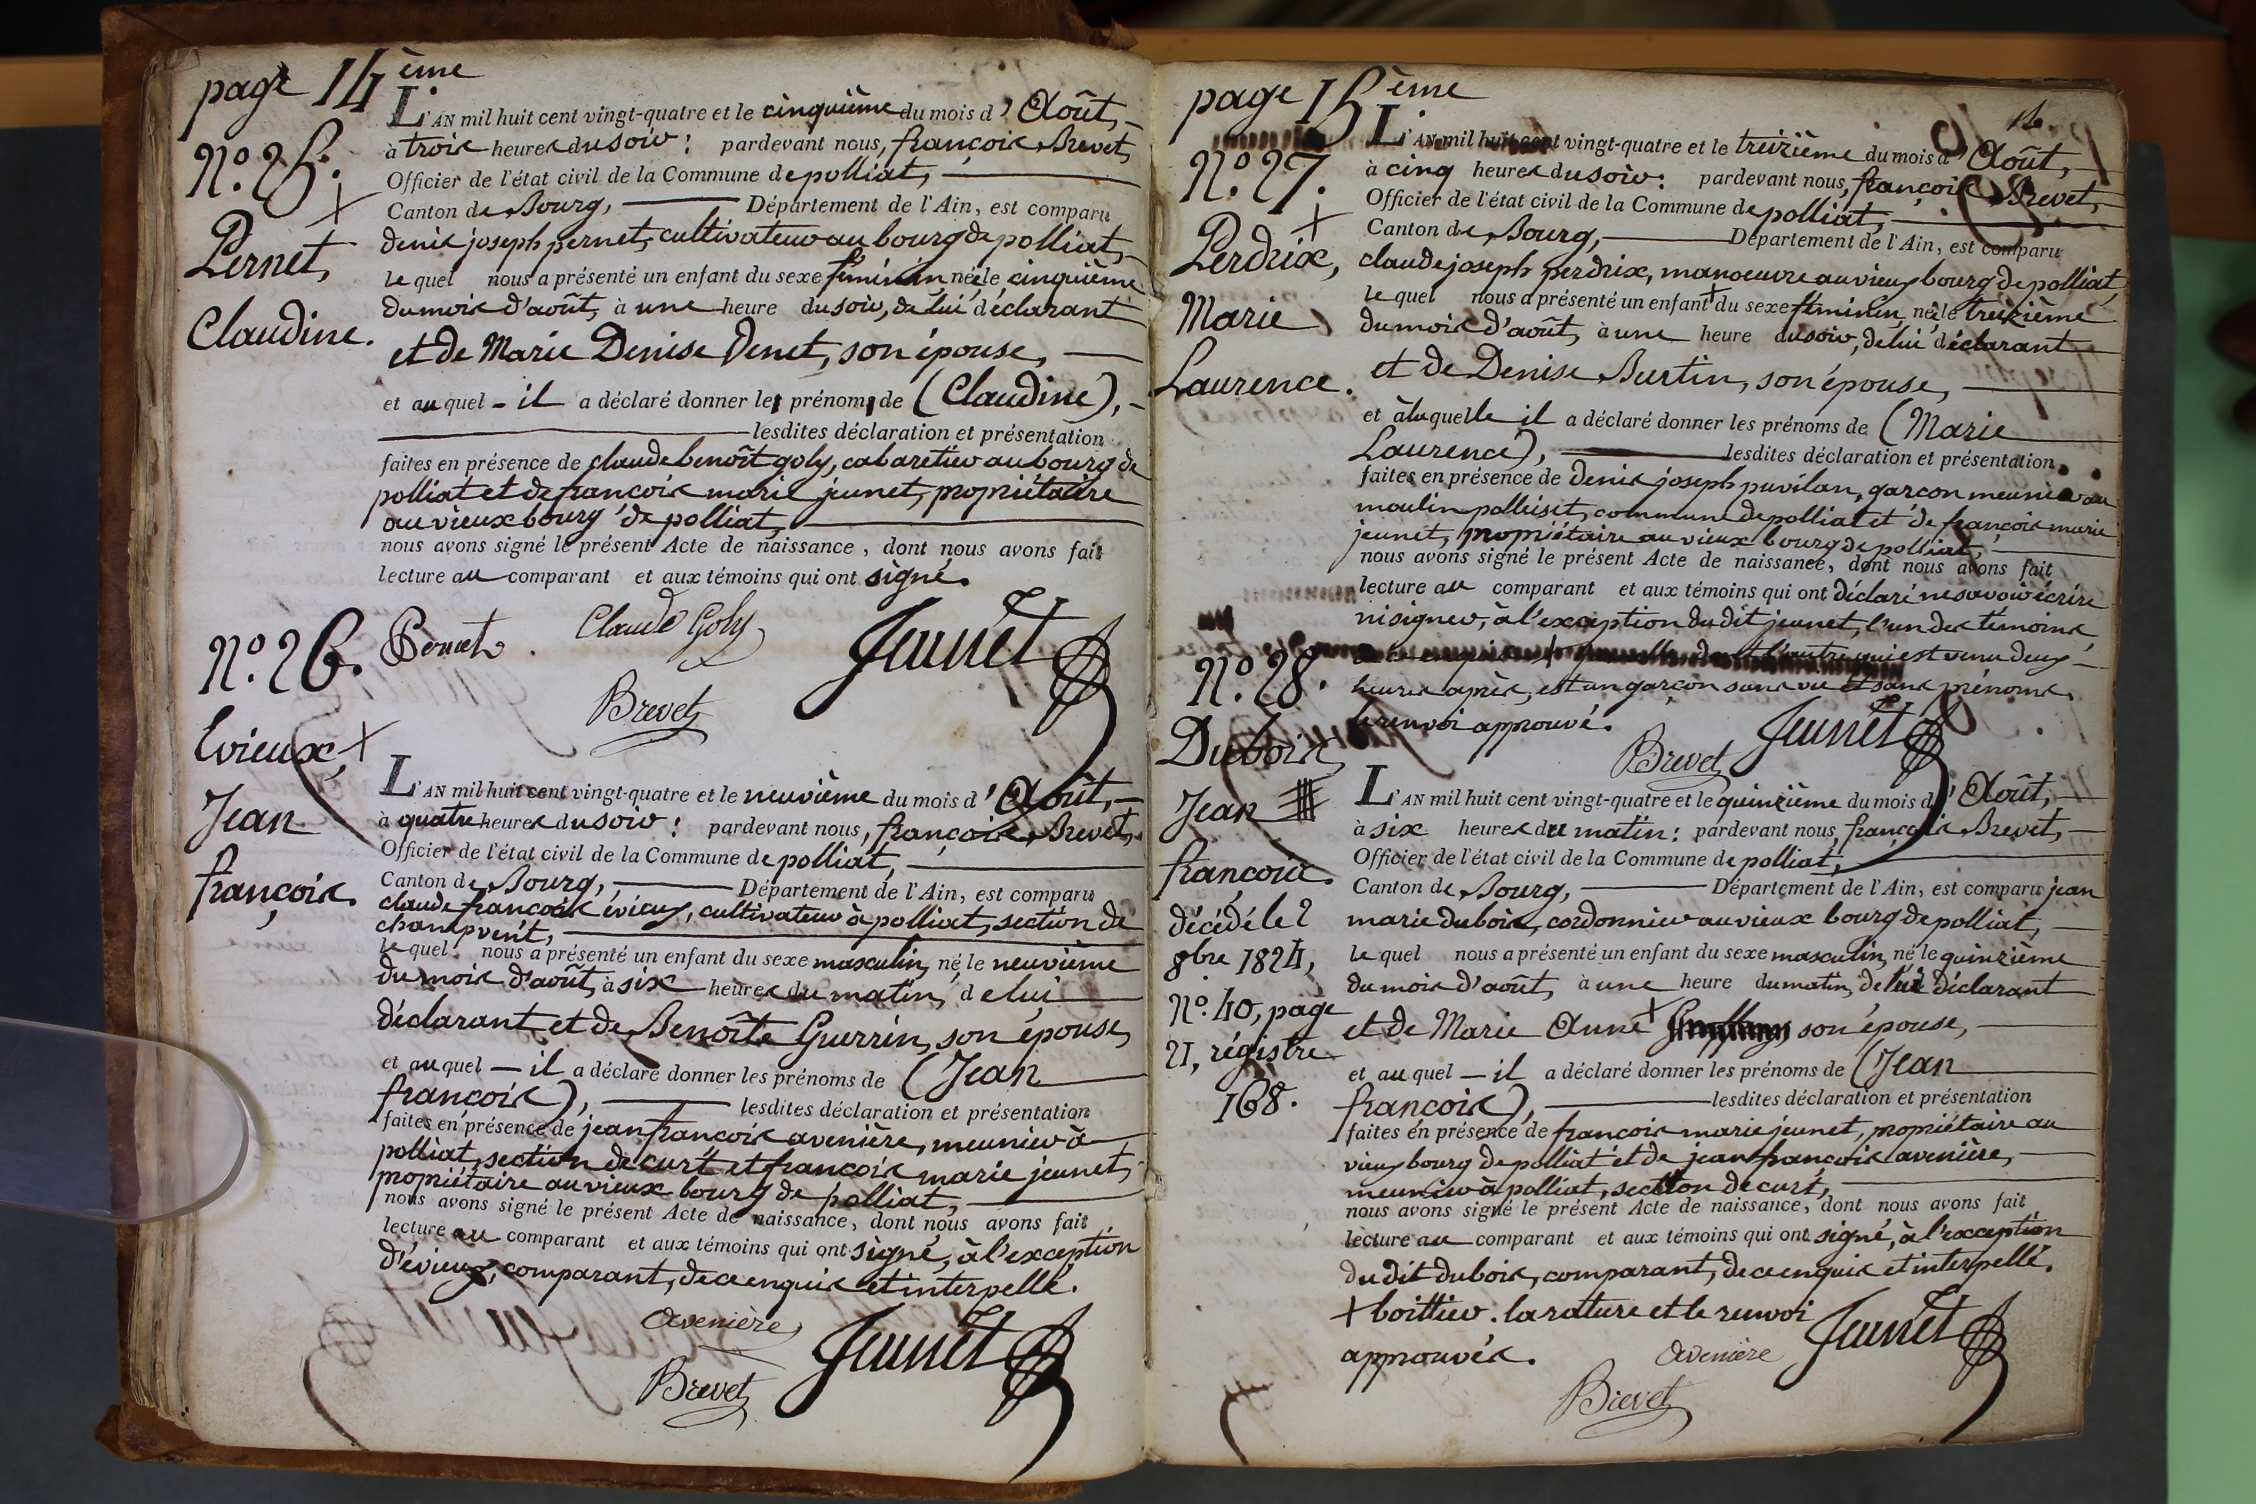 page 14ème
N.° 25.
Pernet,
Claudine.
L'AN mil huit cent vingt-quatre et le cinquième du mois d'Août,
à trois heures du soir : pardevant nous, françois Brevet,
Officier de l'état civil de la Commune de polliat,
Canton de Bourg, Département de l'Ain, est comparu
denis joseph pernet, cultivateur au bourg de polliat,
le quel nous a présenté un enfant du sexe féminin, née le cinquième
du mois d'août, à une heure du soir, de lui déclarant
et de Marie Denise Venet, son épouse,
et au quel il a déclaré donner le prénom de (Claudine),
lesdites déclaration et présentation
faites en présence de claude benoît goly, cabaretier au bourg de
polliat et de françois marie jeunet, propriétaire
au vieux bourg de polliat,
nous avons signé le présent Acte de naissance, dont nous avons fait
lecture au comparant et aux témoins qui ont signé.
Pernet
Claude Goly
Jeunet
Brevet
N.° 26.
Évieux,
Jean
françois.
L'AN mil huit cent vingt-quatre et le neuvième du mois d'Août,
à quatre heures du soir : pardevant nous, françois Brevet,
Officier de l'état civil de la Commune de polliat,
Canton de Bourg, Département de l'Ain, est comparu
claude françois évieux, cultivateur à polliat, section de
champvent,
le quel nous a présenté un enfant du sexe masculin, né le neuvième
du mois d'août, à six heures du matin, de lui
déclarant et de Benoîte Guerrin, son épouse,
et au quel il a déclaré donner les prénoms de (Jean
françois), lesdites déclaration et présentation
faites en présence de jean françois avenière, meunier à
polliat, section de curt et françois marie jeunet,
propriétaire au vieux bourg de polliat,
nous avons signé le présent Acte de naissance, dont nous avons fait
lecture au comparant et aux témoins qui ont signé, à l'exception
d'évieux, comparant, de ce enquis et interpellé.
Avenière
Jeunet
Brevet
page 15ème
N.° 27.
Perdrix,
Marie
Laurence.
L'AN mil huit cent vingt-quatre et le treizième du mois d'Août,
à cinq heures du soir : pardevant nous, françois Brevet,
Officier de l'état civil de la Commune de polliat,
Canton de Bourg, Département de l'Ain, est comparu
claude joseph perdrix, manoeuvre au vieux bourg de polliat,
le quel nous a présenté un enfant + du sexe féminin, née le treizième
du mois d'août, à une heure du soir, de lui déclarant
et de Denise Burtin, son épouse,
et à la quelle il a déclaré donner les prénoms de (Marie
Laurence), lesdites déclaration et présentation
faites en présence de denis joseph puvilan, garçon meunier au
moulin polleiset, commune de polliat et de françois marie
jeunet, propriétaire au vieux bourg de polliat,
nous avons signé le présent Acte de naissance, dont nous avons fait
lecture au comparant et aux témoins qui ont déclaré ne savoir écrire
ni signer, à l'exception du dit jeunet, l'un des témoins
de ce enquis. + jumelle dont l'autre qui est venu deux
heures après, est un garçon sans vie et sans prénoms.
le renvoi approuvé.
Brevet
Jeunet
N.° 28.
Dubois
Jean
françois.
décédé le 2
9bre 1824,
N.° 40, page
21, régistre
168.
L'AN mil huit cent vingt-quatre et le quinzième du mois d'Août,
à six heures du matin : pardevant nous, françois Brevet,
Officier de l'état civil de la Commune de polliat,
Canton de Bourg, Département de l'Ain, est comparu jean
marie dubois, cordonnier au vieux bourg de polliat,
le quel nous a présenté un enfant du sexe masculin, né le quinzième
du mois d'août, à une heure du matin, de lui déclarant
et de Marie Anne + son épouse,
et au quel il a déclaré donner les prénoms de (Jean
françois), lesdites déclaration et présentation
faites en présence de françois marie jeunet, propriétaire au
vieux bourg de polliat et de jean françois avenière,
meunier à polliat, section de curt,
nous avons signé le présent Acte de naissance, dont nous avons fait
lecture au comparant et aux témoins qui ont signé, à l'exception
du dit dubois, comparant, de ce enquis et interpellé.
+ boittier. la rature et le renvoi
approuvés.
Avenière
Jeunet
Brevet